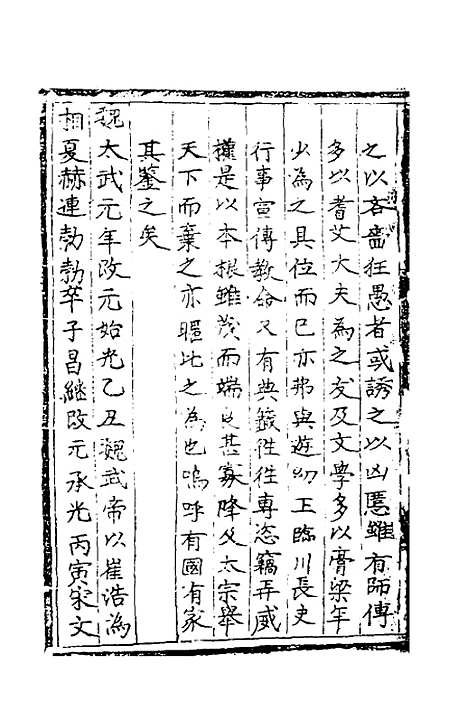 之以吝嗇狂愚者或誘之以凶慝雖有師傅
多以耆艾大夫為之友及文學多以膏梁年
少為之具位而已亦弗與遊幼王臨川長史
行事宣傳教命又有典籤徃徃專恣竊弄威
權是以本根雖茂而端良甚寡降及太宗舉
天下而棄之亦暱比之為也嗚呼有國有家
其鑒之矣
魏太武元年改元始光乙丑魏武帝以崔浩為
相夏赫連勃勃卒子昌繼改元承光丙寅宋文